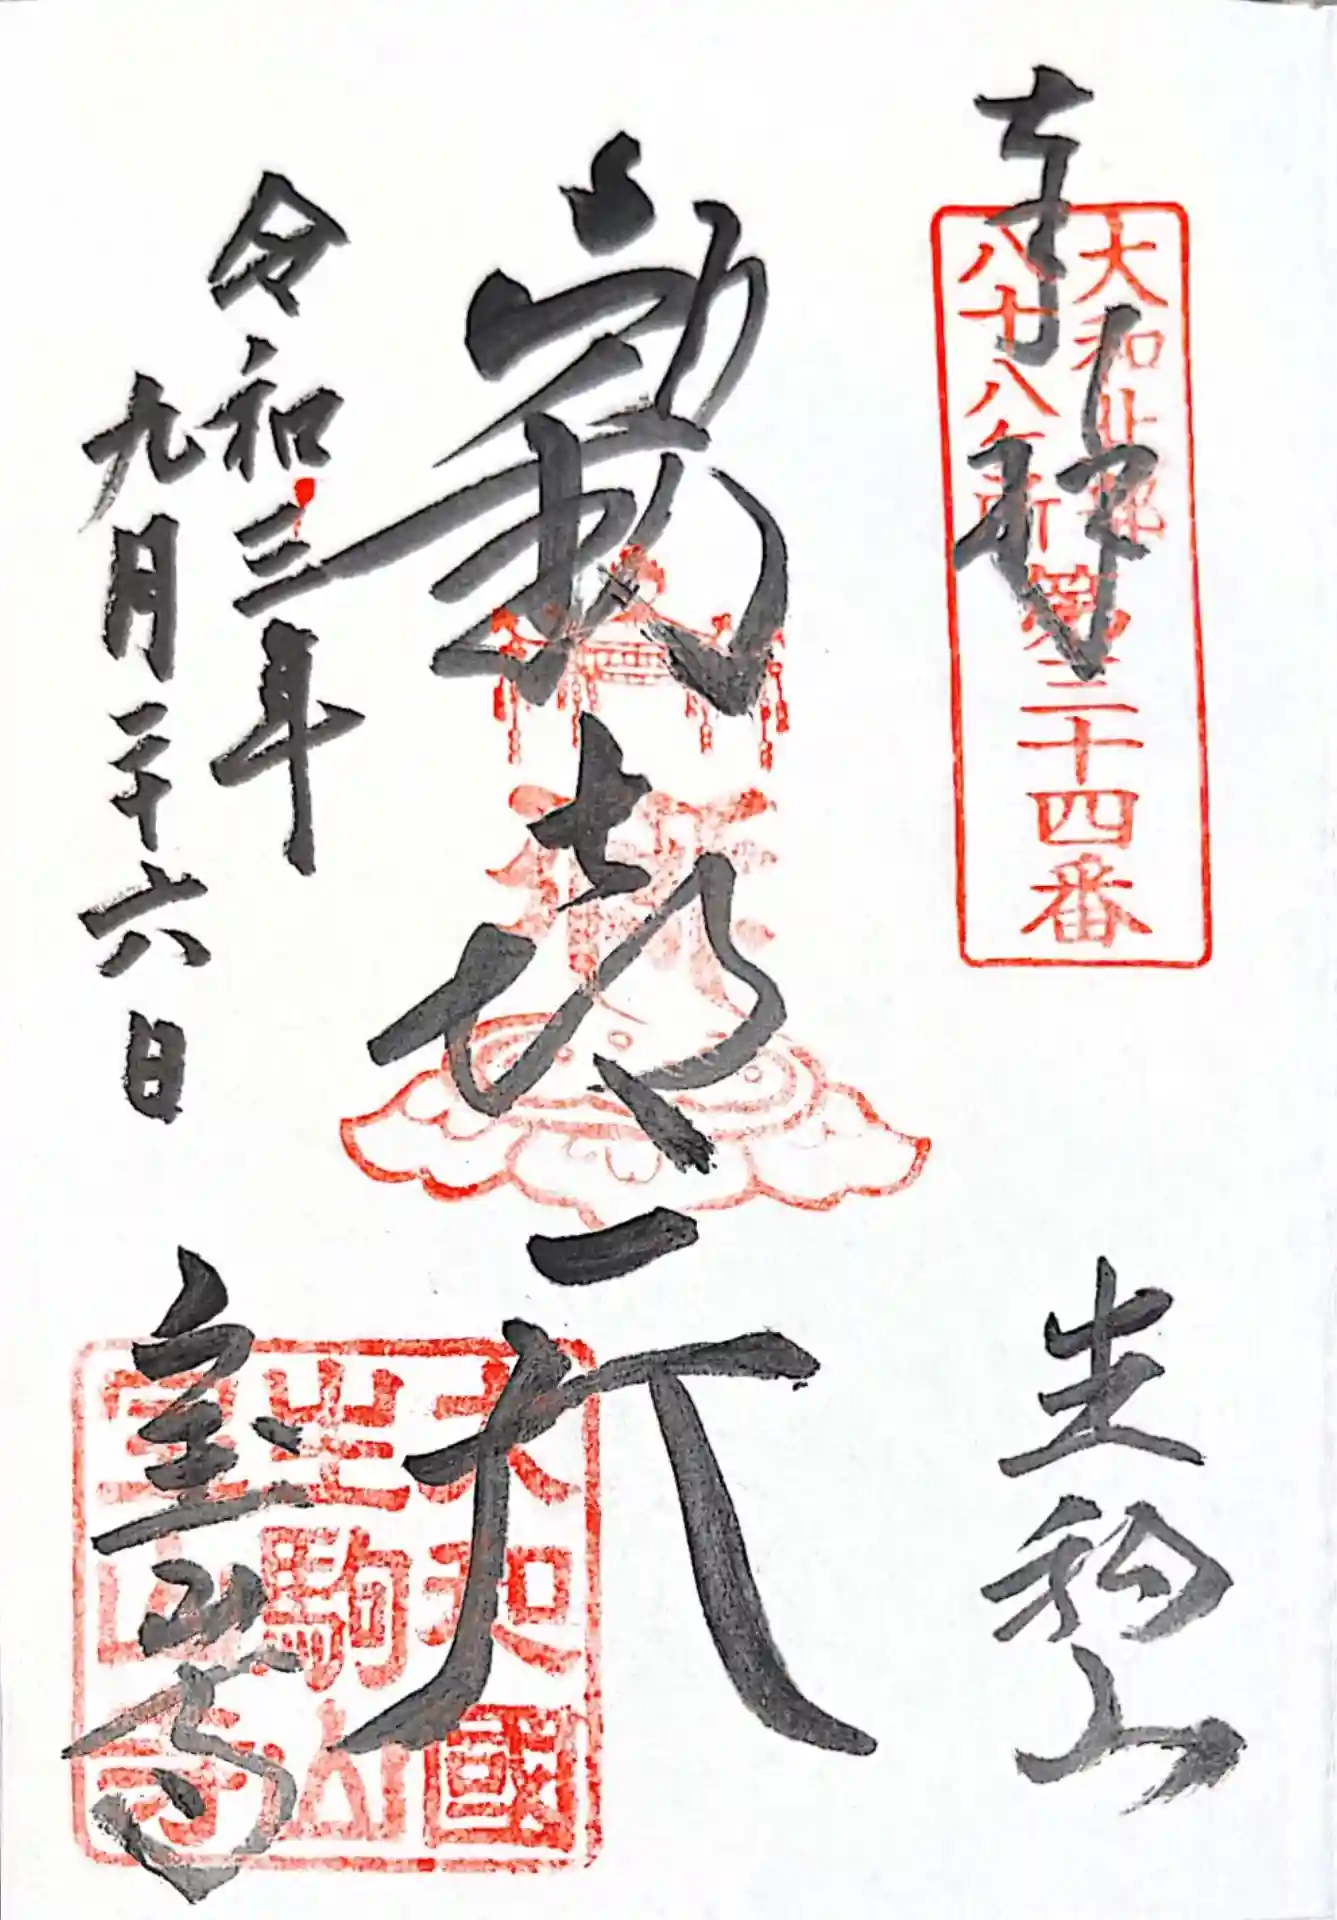 奉拝
大和北部
八十八ヶ所
第三十四番
生駒山
歓喜天
令和三年
九月二十六日
宝山寺
大和國
生駒山
宝山寺